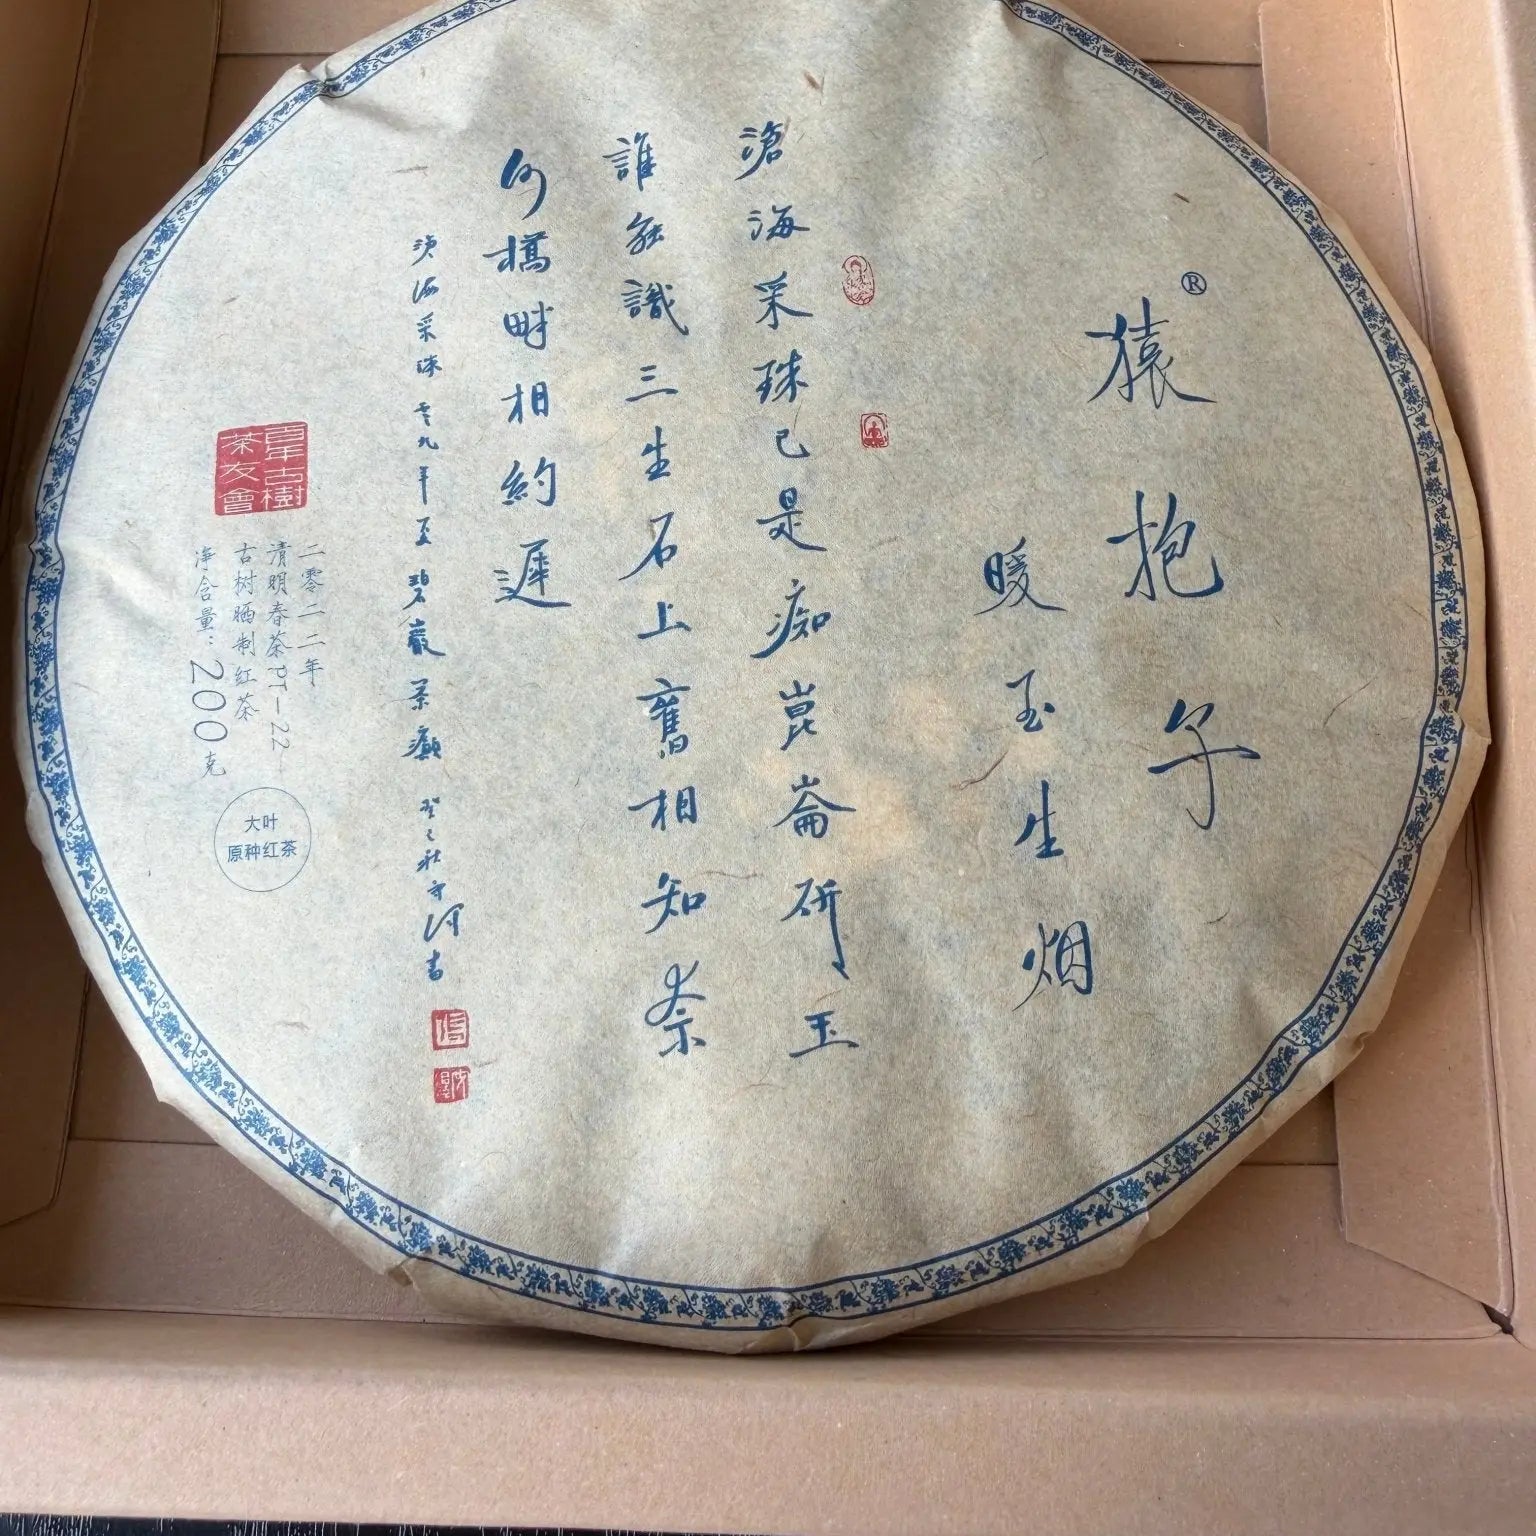 猿抱子®
暖玉生烟
滄海采珠已是痴崑崙斫玉
誰能識三生石上舊相知奈
何橋畔相約遲
滄海采珠零九年至碧巖茶癲
百年古樹
茶友會
二零二二年
清明春茶PT—22
古树晒制红茶
净含量：200克
大叶
原种红茶